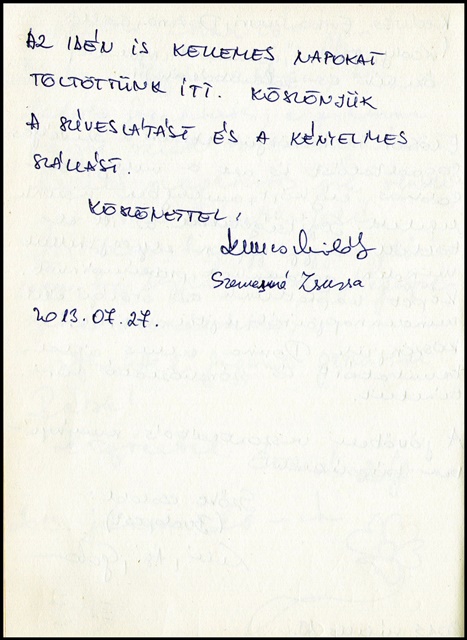 AZ IDÉN IS KELLEMES NAPOKAT
TÖLTÖTTÜNK ITT. KÖSZÖNJÜK
A SZÍVESLÁTÁST ÉS A KÉNYELMES
SZÁLLÁST.
KÖSZÖNETTEL:
Zsuzsa
2013.07.27.